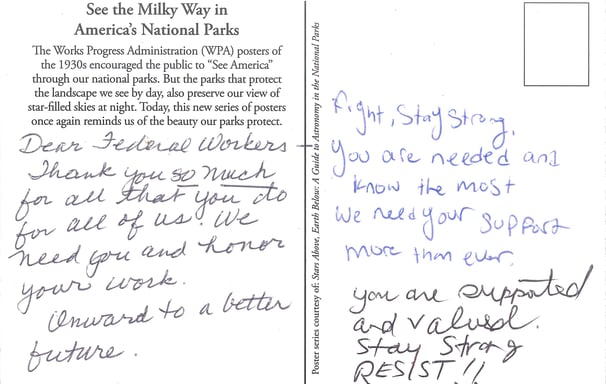 See the Milky Way in
America's National Parks
The Works Progress Administration (WPA) posters of
the 1930s encouraged the public to "See America"
through our national parks. But the parks that protect
the landscape we see by day, also preserve our view of
star-filled skies at night. Today, this new series of posters
once again reminds us of the beauty our parks protect.
Dear Federal Workers
Thank you so much
for all that you do
for all of us. We
need you and honor
your work.
Onward to a better
future.
Poster series courtesy of: Stars Above, Earth Below: A Guide to Astronomy in the National Parks
Fight, Stay Strong,
You are needed and
know the most
We need your support
more than ever.
you are supported
and valued.
Stay Strong
RESIST!!